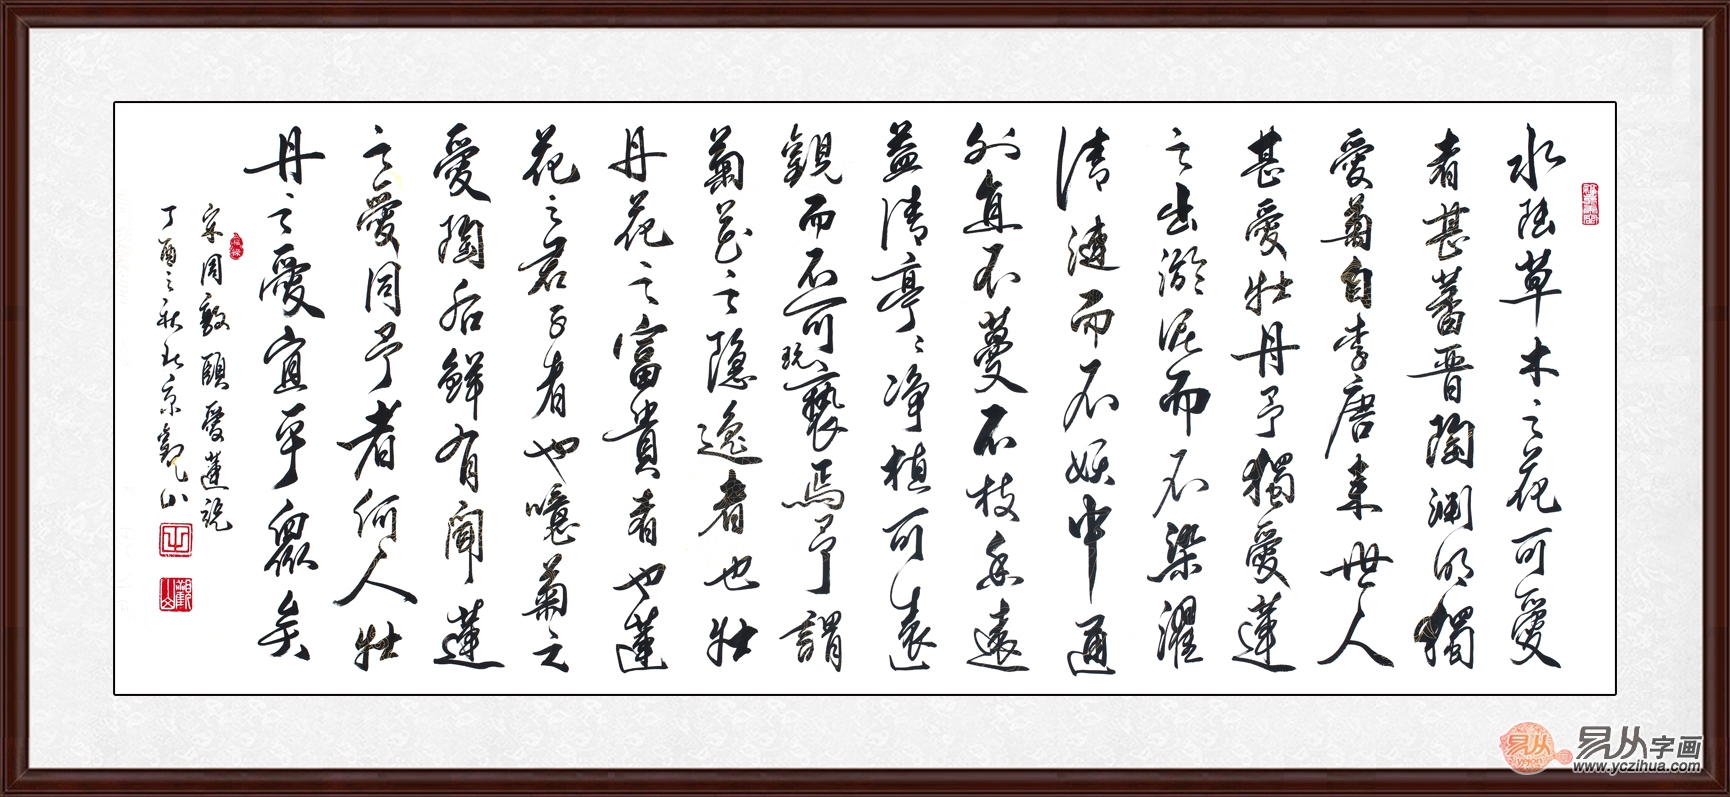 水陸草木之花可愛
者甚蕃晋陶渊明獨
愛菊自李唐来世人
甚愛牡丹予獨愛蓮
之出淤泥而不染濯
清漣而不妖中通
外直不蔓不枝香遠
益清亭亭净植可遠
觀而不可褻玩焉予謂
菊花之隐逸者也牡
丹花之富貴者也蓮
花之君子者也噫菊之
愛陶后鮮有聞蓮
之愛同予者何人牡
丹之愛宜乎眾矣
宋周敦頤愛蓮説
丁酉之秋北京觀山
易从字画
www.yczihua.com